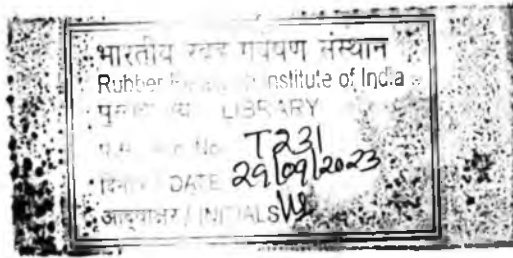 भारतीय रबड़ गवेषण संस्थान
Rubber Institute of India
LIBRARY
No. T231
दिनांक / DATE 29/09/2023
आद्याक्षर / INITIALS